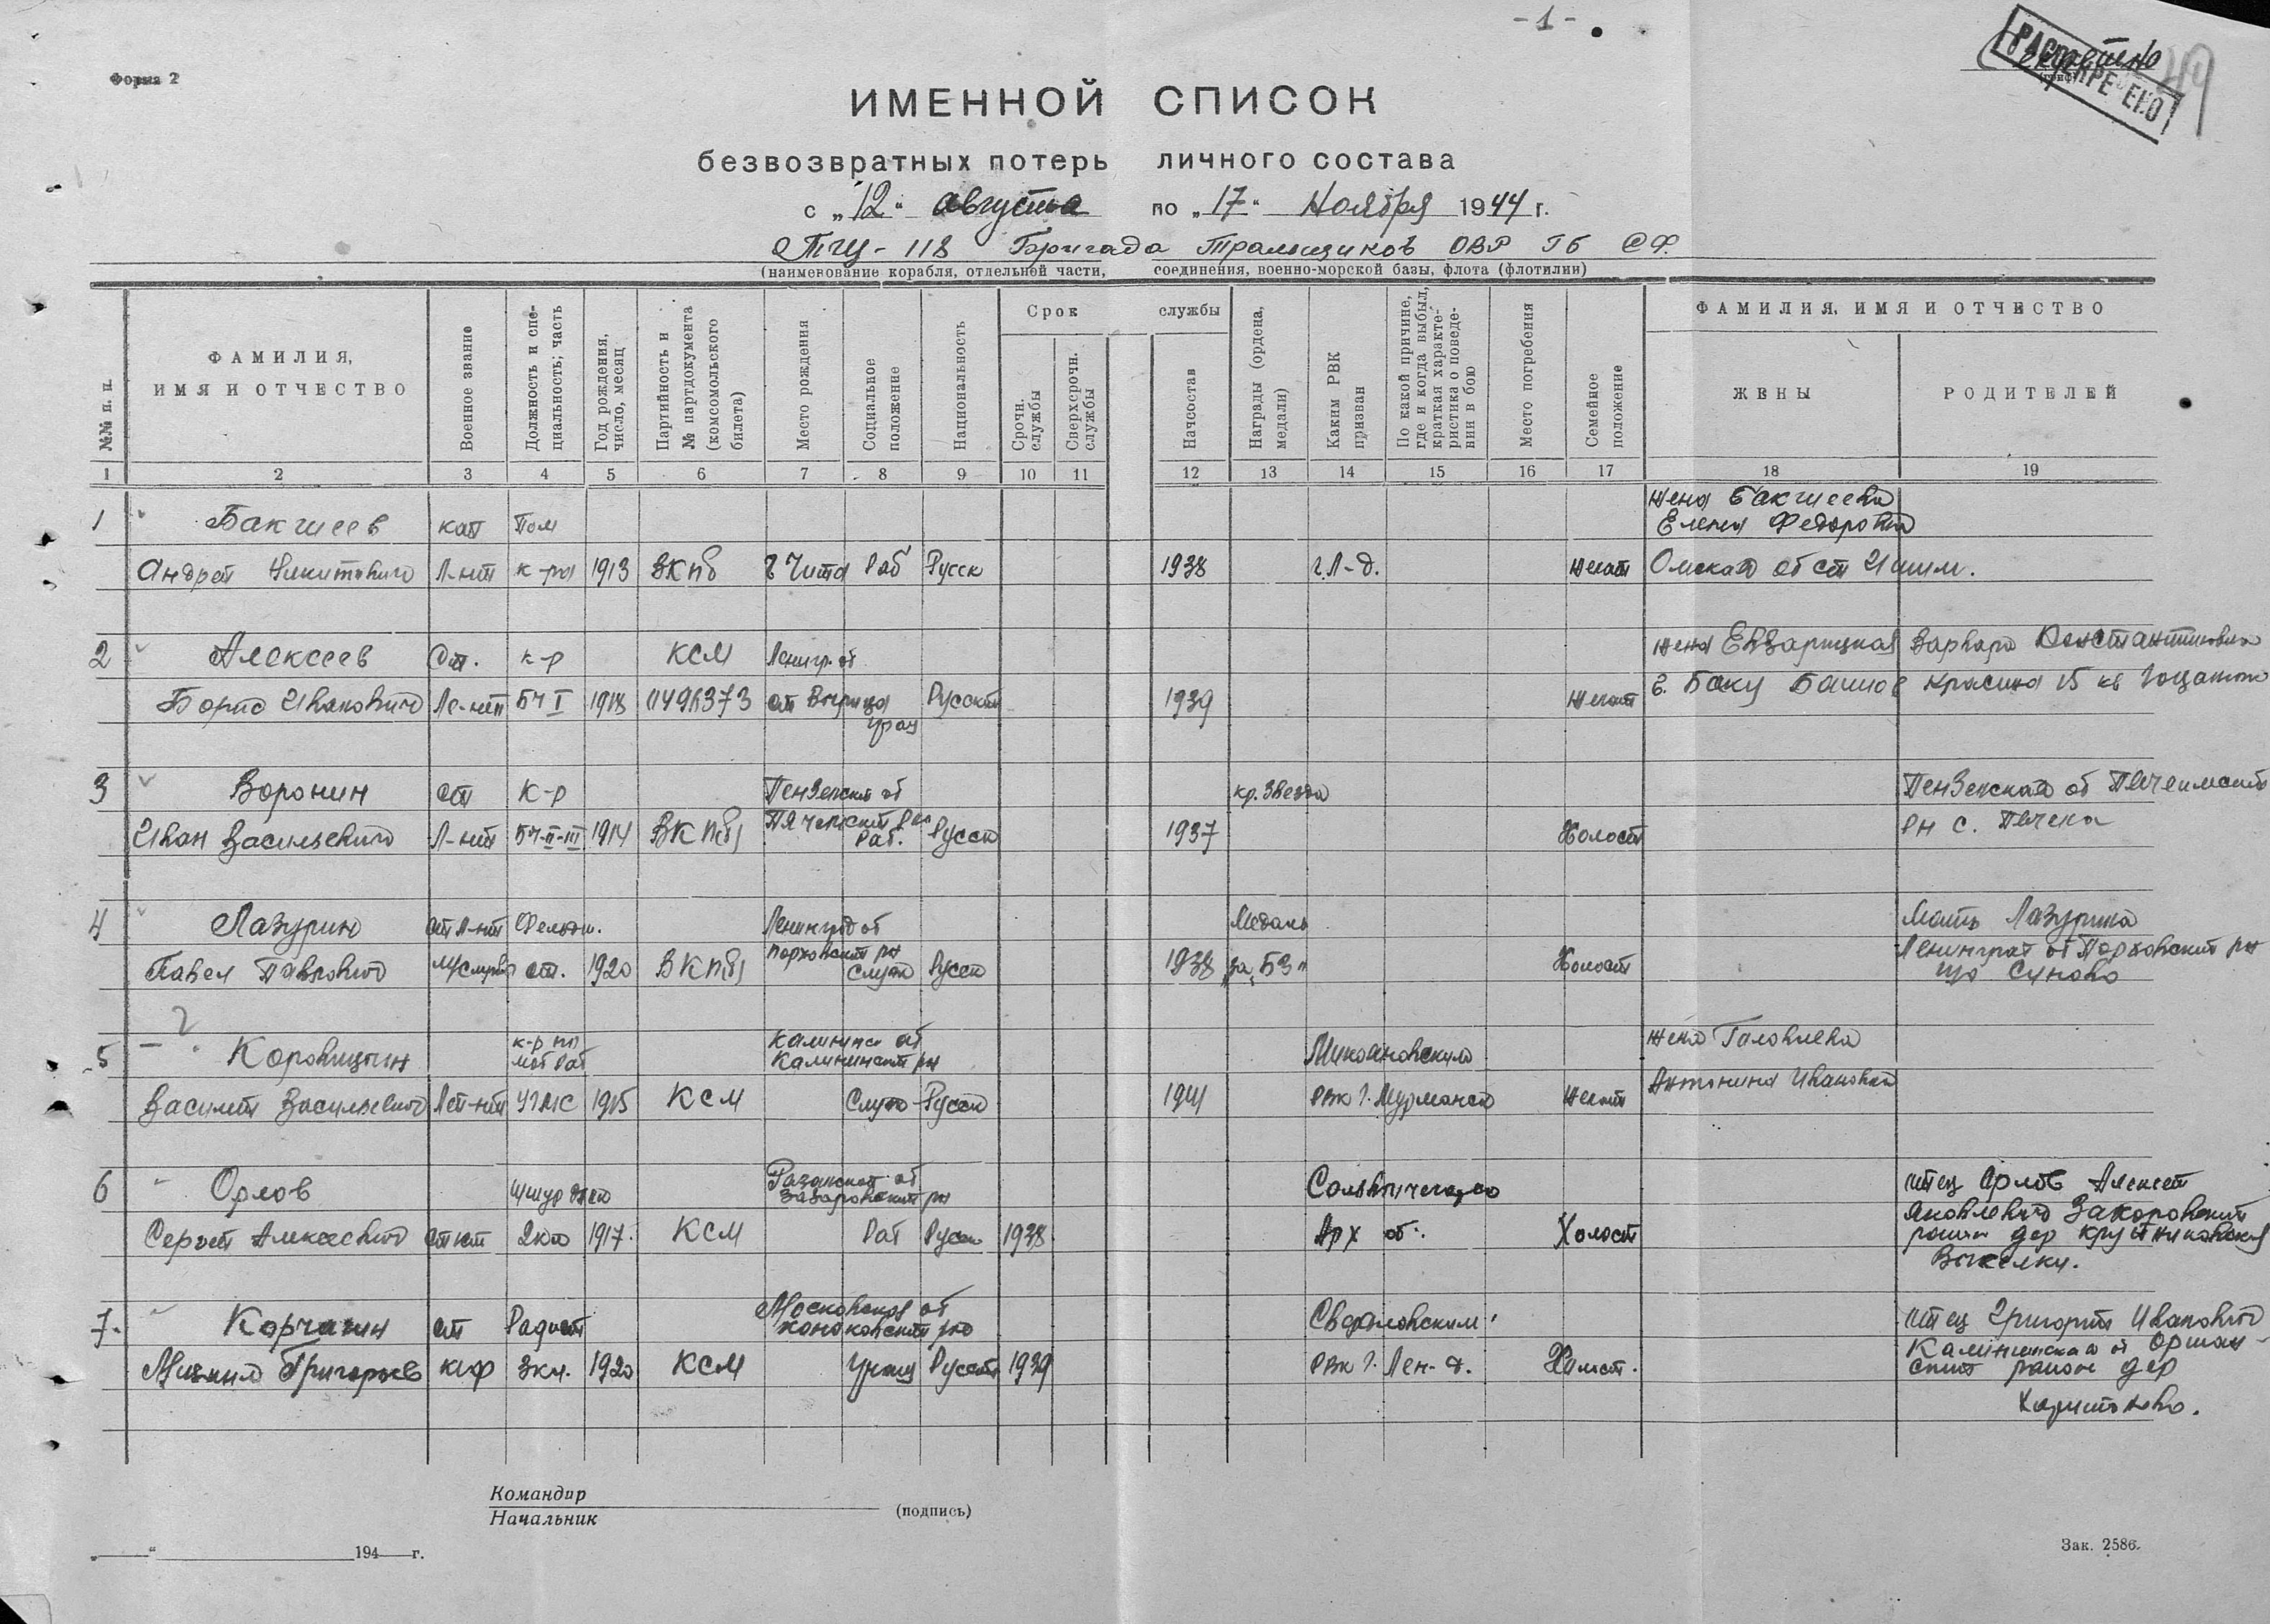 - 1 -
Форма 2
РАССЕКРЕЧЕНО
49
ИМЕННОЙ СПИСОК
безвозвратных потерь личного состава
с „12“ августа по „17“ Ноября 1944 г.
ТЩ-118 Бригада Тральщиков ОВР ГБ СФ.
(наименование корабля, отдельной части, соединения, военно-морской базы, флота (флотилии)
№№ п. п.
ФАМИЛИЯ, ИМЯ И ОТЧЕСТВО
Военное звание
Должность и специальность; часть
Год рождения, число, месяц
Партийность и № партдокумента (комсомольского билета)
Место рождения
Социальное положение
Национальность
Срок службы
Срочн. службы
Сверхсрочн. службы
Начсостав
Награды (ордена, медали)
Каким РВК призван
По какой причине, где и когда выбыл, краткая характеристика о поведении в бою
Место погребения
Семейное положение
ФАМИЛИЯ, ИМЯ И ОТЧЕСТВО
ЖЕНЫ
РОДИТЕЛЕЙ
1 2 3 4 5 6 7 8 9 10 11 12 13 14 15 16 17 18 19
жена Бакшеева
1 Бакшеев кап Пом Елена Федоровна
Андрей Никитович Л-нт к-ра 1913 ВКПб г Чита Раб Русск 1938 г.Л-д. женат Омская об ст Ишим.
2 Алексеев Ст. к-р КСМ Ленигр. об жена Варвара Константиновна
Борис Иванович Ле-нт БЧ I 1918 ст Вырица Русский 1939 женат г. Баку Баилов Красина 15 кв
3 Воронин ст к-р Пензенская об кр. Звезда Пензенская об
Иван Васильевич Л-нт БЧ-II-III 1914 ВКП(б) Раб. Русск 1937 Холост рн с.
4 Лазурин ст Л-нт Фельдш. Ленинград об Медаль Мать Лазурина
Павел Павлович ст. 1920 ВКП(б) Порховский рн Служ Русск 1938 за „БЗ“ Холост Ленинград об Порховский рн
5 Коровицын к-р по Калининс об Калининский рн Микояновским жена Головлева
Василий Васильевич Лей-нт 1915 КСМ Служ Русск 1941 РВК г. Мурманск женат Антонина Ивановна
6 Орлов Рязанской об Сольвычегодс отец Орлов Алексей
Сергей Алексеевич 2кл 1917 КСМ Раб Русск 1938 Арх об. Холост Яковлевич
Выселки.
7. Корчагин ст Радист Московская об Свердловским отец Григорий Иванович
Михаил Григорьев кф 3кл. 1920 КСМ Русский 1939 РВК г. Лен-д. Холост. Калининская об
район дер
Харитоново.
Командир
Начальник (подпись)
„ “ 194 г.
Зак. 2586.